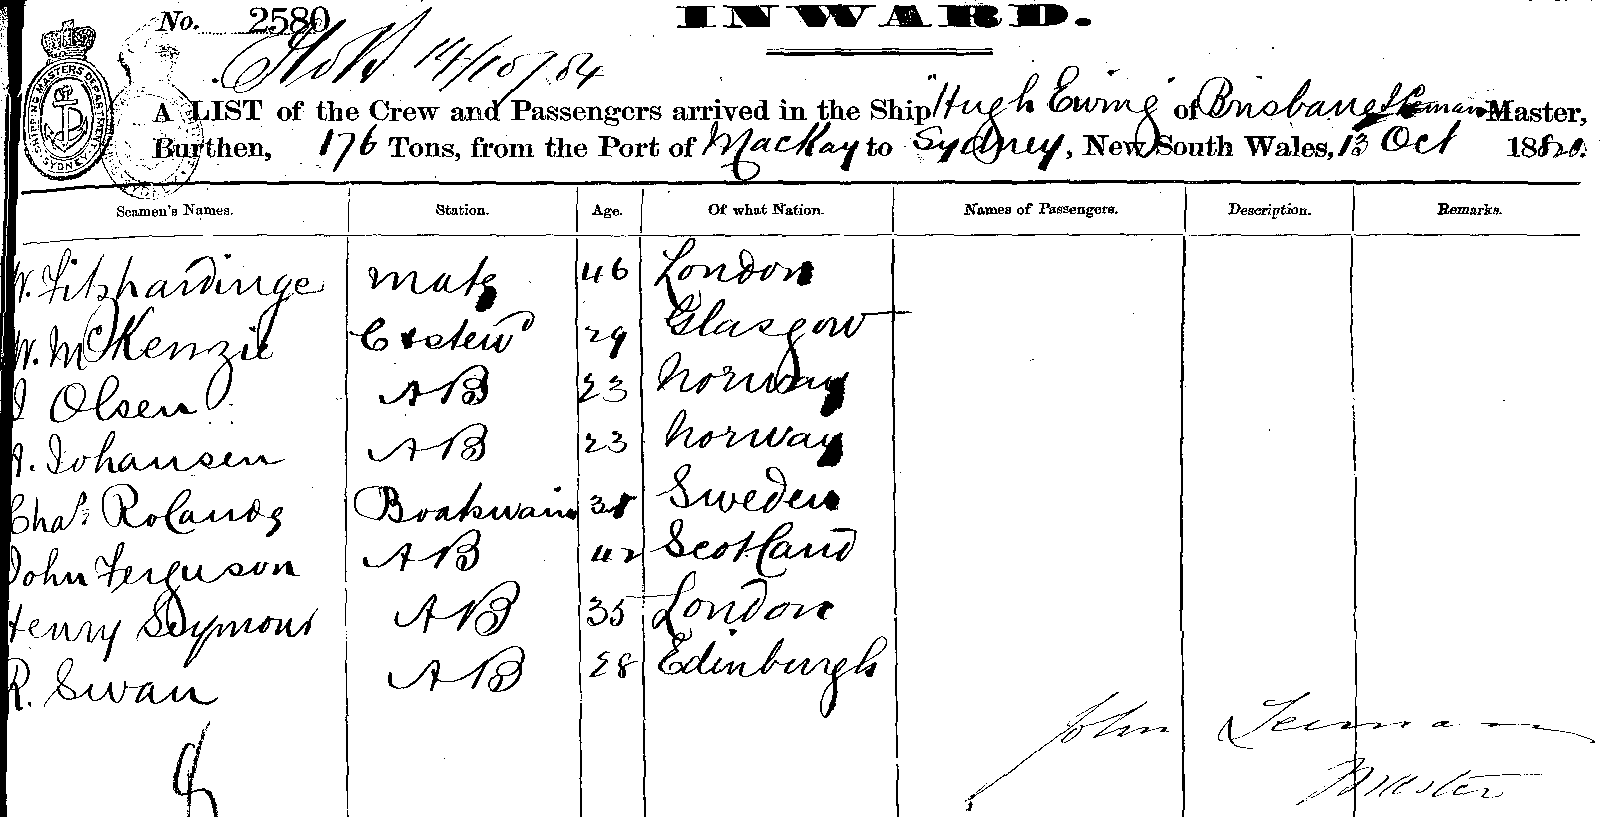 No. 2580 INWARD.
14/10/84
A LIST of the Crew and Passengers arrived in the Ship "Hugh Ewing" of Brisbane Leman Master,
Burthen, 176 Tons, from the Port of Mackay to Sydney, New South Wales, 13 Oct 188
Seamen's Names. Station. Age. Of what Nation. Names of Passengers. Description. Remarks.
W. Fitzhardinge Mate 46 London
W. McKenzie C & Stewd 29 Glasgow
J Olsen AB 23 Norway
A. Johansen AB 23 Norway
Chas Rolands Boatswain 38 Sweden
John Ferguson AB 42 Scotland
Henry Seymour AB 35 London
R. Swan AB 28 Edinburgh
John Leman
Master